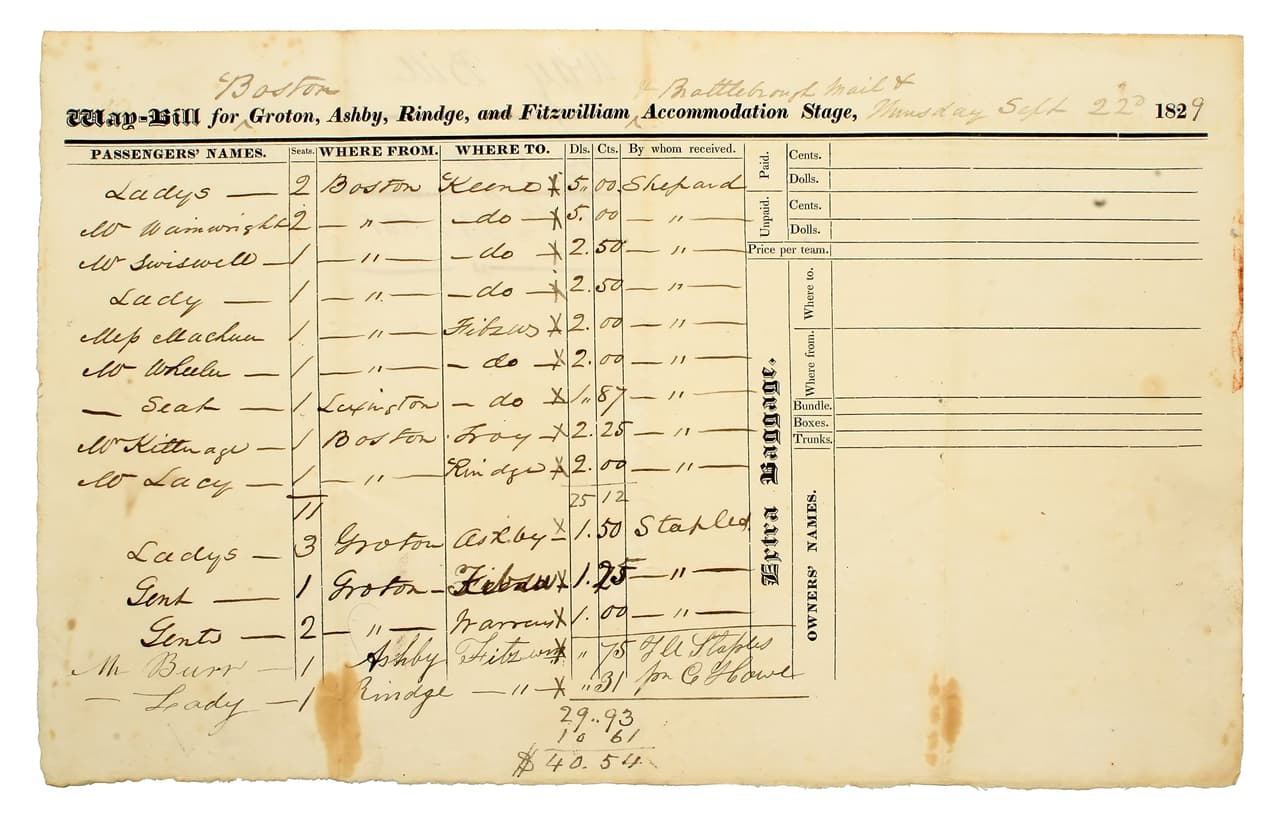 Boston & Brattlebrough Mail &
Way-Bill for Groton, Ashby, Rindge, and Fitzwilliam Accommodation Stage, Thursday Sept 22d 1829
PASSENGERS' NAMES. Seats. WHERE FROM. WHERE TO. Dls. Cts. By whom received.
Ladys — 2 Boston Keene X 5,, 00 Shepard
Mr Wainwright 2 — " — — do — X 5. 00 — " —
Mr Swiswell — 1 — " — — do — X 2. 50 — " —
Lady — 1 — " — — do — X 2. 50 — " —
1 — " — Fitzw X 2. 00 — " —
Mr Wheeler — 1 — " — — do — X 2. 00 — " —
— Seat — 1 Lexington — do X 1,, 87 — " —
Mr Kittredge — 1 Boston Troy — X 2. 25 — " —
Mr Lacy — 1 — " — Rindge X 2. 00 — " —
11 25 12
Ladys — 3 Groton Ashby — X 1. 50 Staples
Gent — 1 Groton — X 1. 25 — " —
Gents — 2 — " — X 1. 00 — " —
Mr Burr — 1 Ashby Fitzwm X " 75 Staples
— Lady — 1 Rindge — " — X " 31 pr C Howe
29.. 93
10 61
$ 40. 54
Paid. Cents.
Dolls.
Unpaid. Cents.
Dolls.
Price per team.
Extra Baggage.
Where to.
Where from.
Bundle.
Boxes.
Trunks.
OWNERS' NAMES.